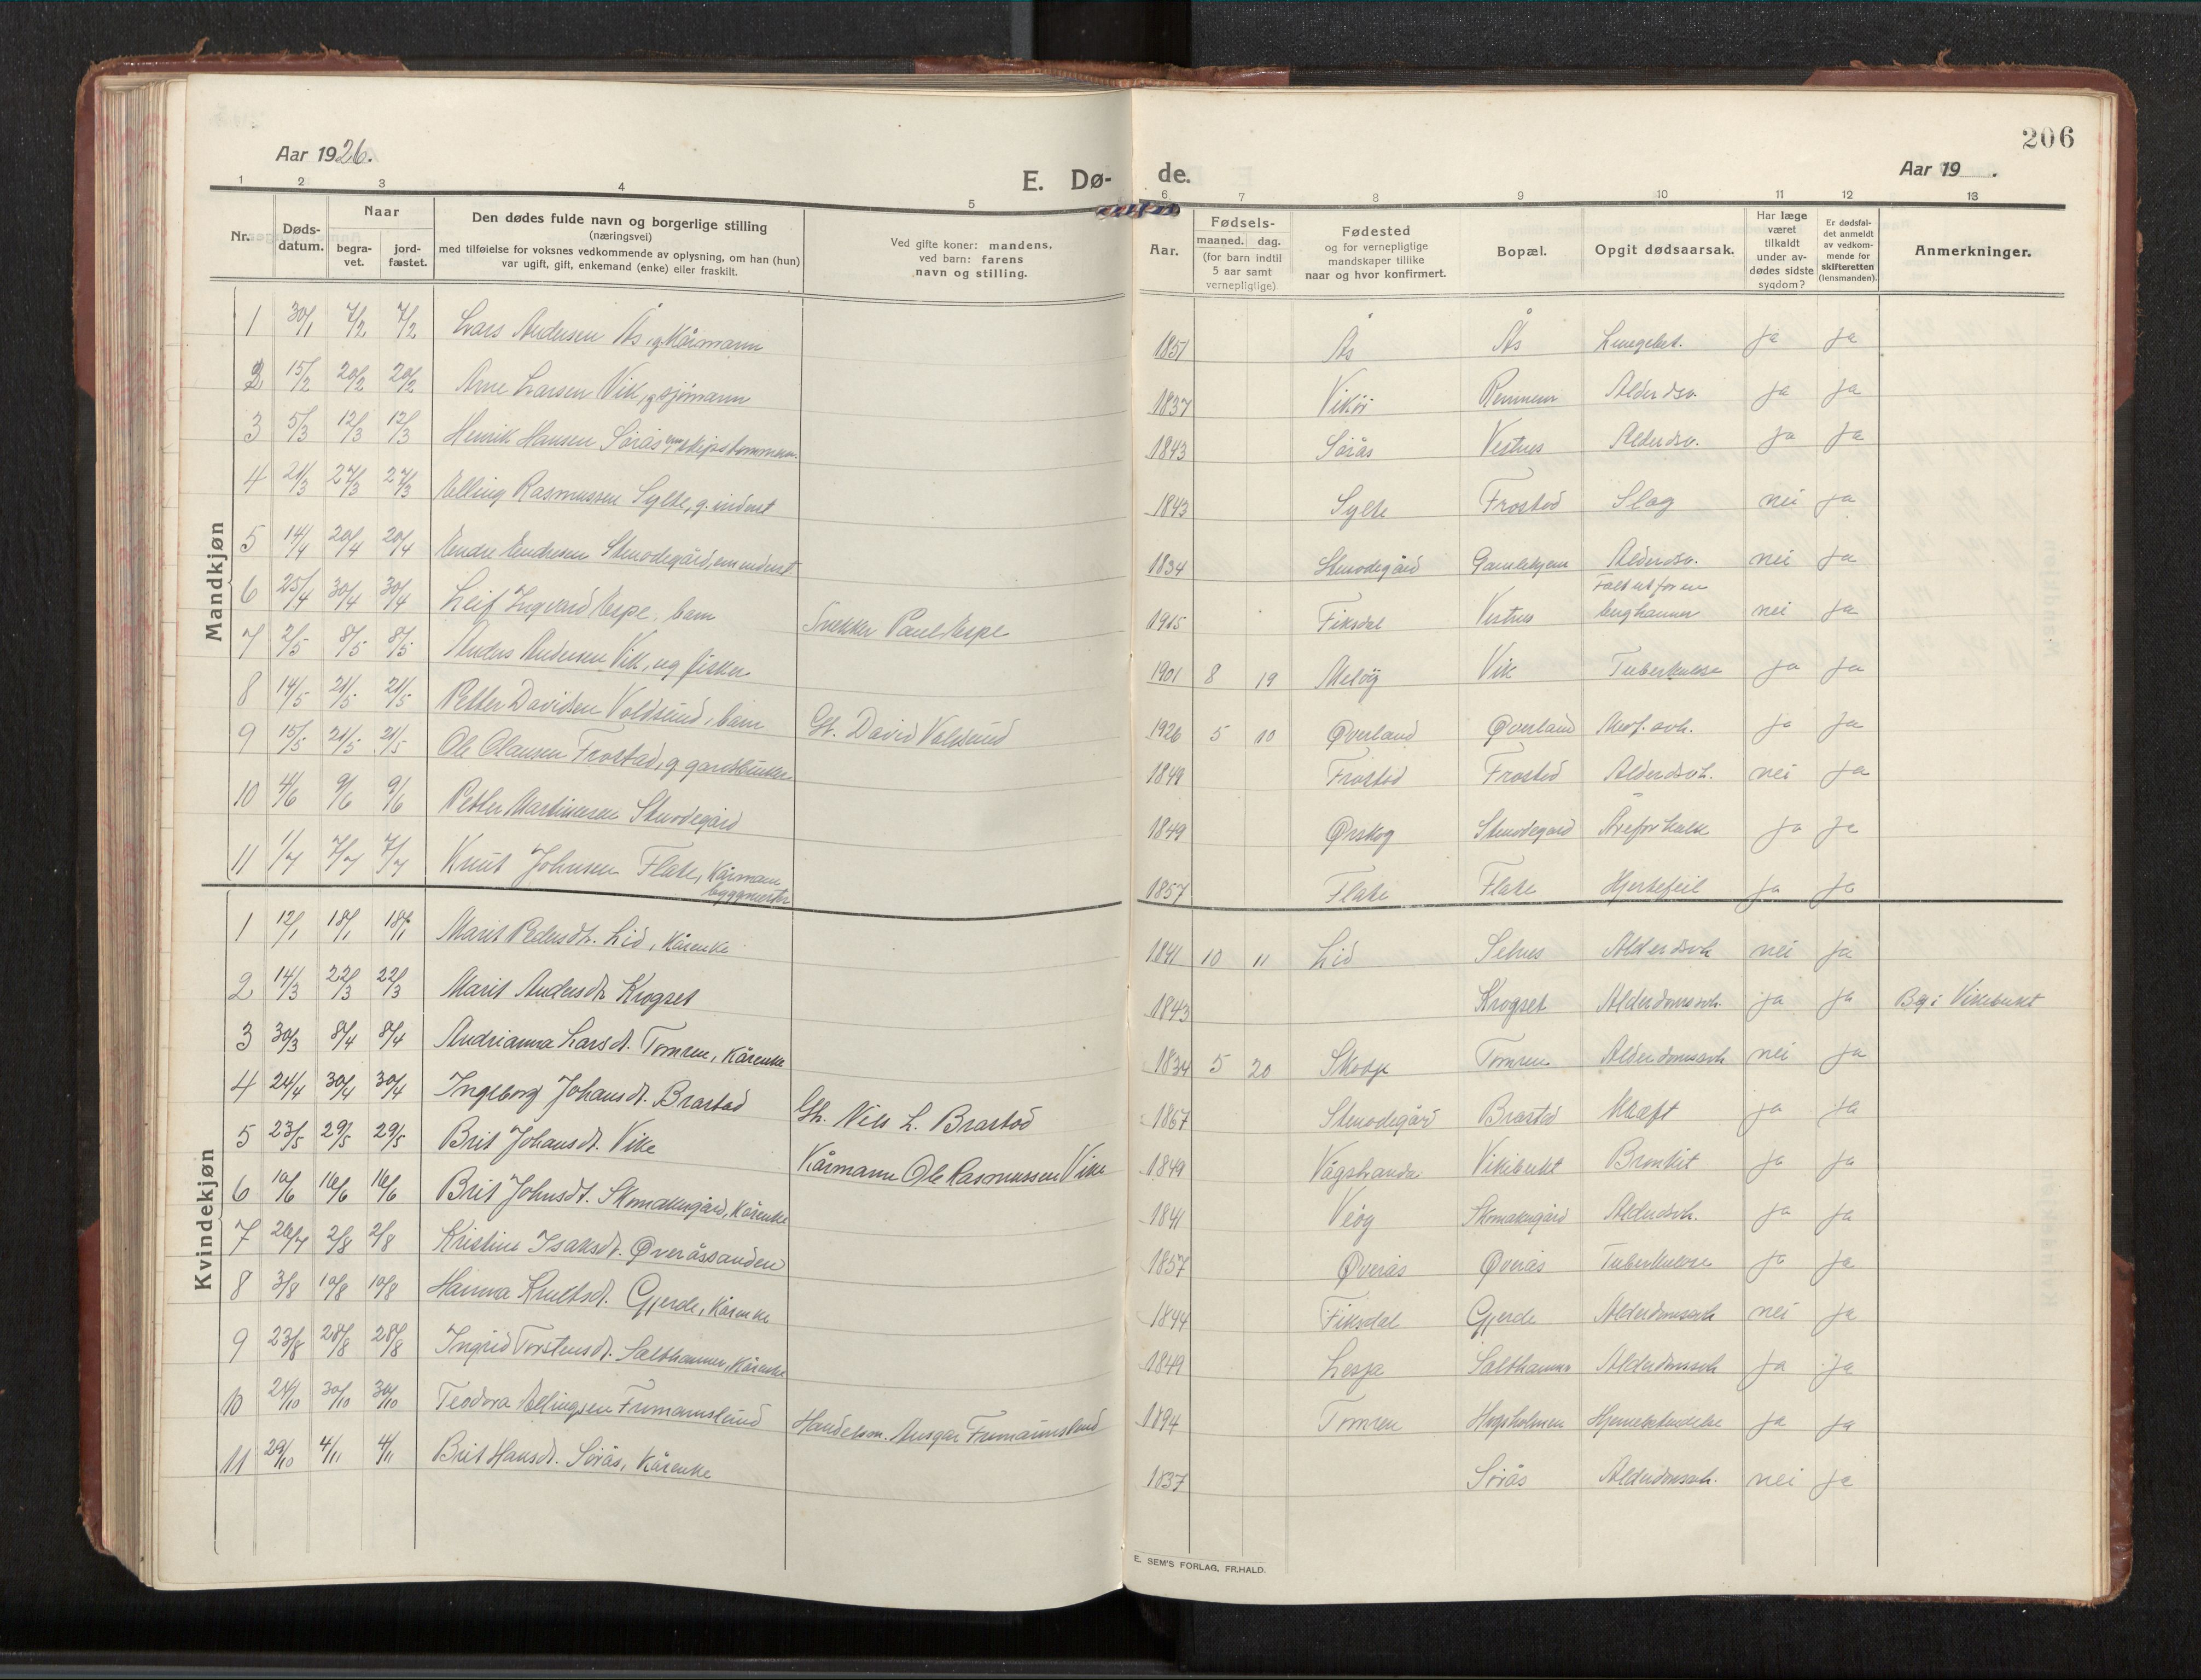 206
Aar 1926.
E. Dø-
de.
Aar 19 .
1 2 3 4 5
6 7 8 9 10 11 12 13
Nr. Døds-datum. Naar begra-vet. jord-fæstet. Den dødes fulde navn og borgerlige stilling (næringsvei) med tilføielse for voksnes vedkommende av oplysning, om han (hun) var ugift, gift, enkemand (enke) eller fraskilt. Ved gifte koner: mandens, ved barn: farens navn og stilling.
Aar. Fødsels- maaned. dag. (for barn indtil 5 aar samt vernepligtige) Fødested og for vernepligtige mandskaper tillike naar og hvor konfirmert. Bopæl. Opgit dødsaarsak. Har læge været tilkaldt under av-dødes sidste sygdom? Er dødsfal-det anmeldt av vedkom-mende for skifteretten (lensmanden). Anmerkninger.
Mandkjøn
1 30/1 7/2 7/2 Lars Andersen Ås, g. Kårmann 1851 Ås Ås Lungebet. ja ja
2 15/2 20/2 20/2 Arne Larsen Vik, g sjömann 1837 Vikör Remmem Alderdsv. ja ja
3 5/3 12/3 12/3 Henrik Hansen Sørås em skipstømmerm. 1843 Sørås Vestnes Alderdsv. ja ja
4 21/3 27/3 27/3 Elling Rasmussen Sylte, g. inderst 1843 Sylte Frostad Slag nei ja
5 14/4 20/4 20/4 Endre Endresen Stenodegård, em inderst 1834 Stenodegård Gamlehjem Alderdsv. nei ja
6 25/4 30/4 30/4 Leif Ingvard Espe, barn Snekker Paul Espe 1915 Fiksdal Vestnes Faldt ut for en berghammer nei ja
7 2/5 8/5 8/5 Anders Andersen Vik, ug fisker 1901 8 19 Vik Tuberkulose ja ja
8 14/5 21/5 21/5 Petter Davidsen Voldsund, barn Gb. David Voldsund 1926 5 10 Øverland Øverland Medf. svh. ja ja
9 15/5 21/5 21/5 Ole Olausen Frostad, g gardbruker 1848 Frostad Frostad Alderdsvh. nei ja
10 4/6 9/6 9/6 Petter Martinusen Stenodegård 1849 Ørskog Stenodegard Åreforkalk ja ja
11 1/7 7/7 7/7 Knut Johnsen Flate, Kårmann byggmester 1857 Flate Flate Hjertefeil ja ja
Kvindekjøn
1 12/1 18/1 18/1 Marit Pedersdtr. Lid, Kårenke 1841 10 11 Lid Selnes Alderdsvh nei ja
2 14/3 22/3 22/3 Marit Andersdtr Krogset 1843 Krogset Alderdomssvh. ja ja Bg. i Vikebukt
3 30/3 8/4 8/4 Andrianna Larsdt. Tomren, Kårenke 1834 5 20 Skodje Tomren Alderdomssvh nei ja
4 24/4 30/4 30/4 Ingeborg Johansdt. Brastad Gb. Nils L. Brastad 1867 Stenodegård Brastad Kræft ja ja
5 23/5 29/5 29/5 Brit Johansdt. Vike Kårmann Ole Rasmussen Vike 1849 Vågstranda Vikebukt Bronkit ja ja
6 10/6 16/6 16/6 Brit Johnsdt. Skomakergård, Kårenke 1841 Veøy Skomakergård Alderdsvh. ja ja
7 26/7 2/8 2/8 Kristine Isaksdt. Øveråssanden 1857 Øverås Øverås Tuberkulose ja ja
8 3/8 10/8 10/8 Hanna Knutsdt. Gjerde, Kårenke 1844 Fiksdal Gjerde Alderdomssvh nei ja
9 23/8 28/8 28/8 Ingrid Torstensdt. Salthammer, Kårenke 1849 Lesja Salthammer Alderdomssvh ja ja
10 24/10 30/10 30/10 Teodora Ellingsen Furmannslund Handelsm. Ansgar Furmannslund 1894 Tomren Hagsholmen Hjernebetændelse ja ja
11 29/10 4/11 4/11 Brit Hansdt. Sørås, Kårenke 1837 Sørås Alderdomssvh. nei ja
E. SEM'S FORLAG, FR.HALD.